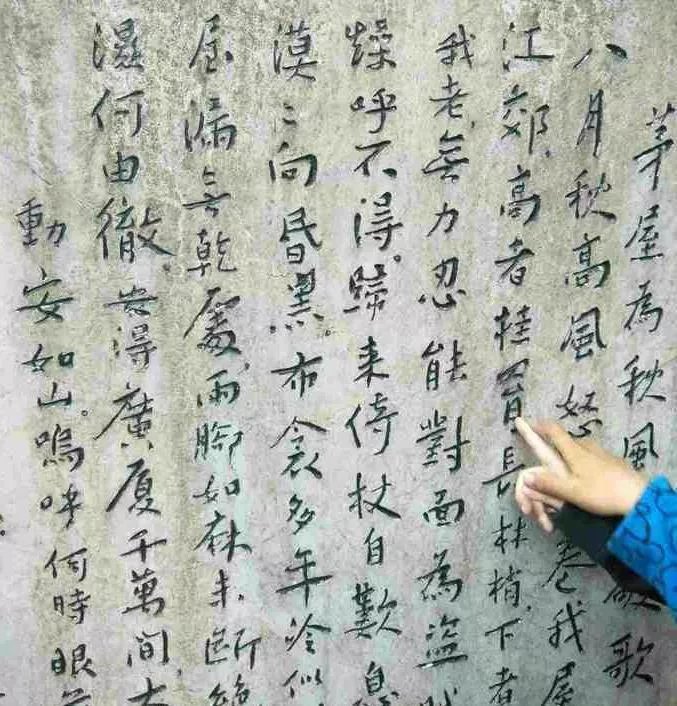 茅屋為秋風破歌
八月秋高風怒卷我屋
江郊，高者挂罥長林梢，下者
我老無力忍能對面為盜賊
燥呼不得。歸来倚杖自歎息
漠々向昏黑。布衾多年冷似
屋漏無乾處，雨脚如麻未斷絕
濕何由徹。安得廣厦千萬間，大
動安如山。嗚呼何時眼前